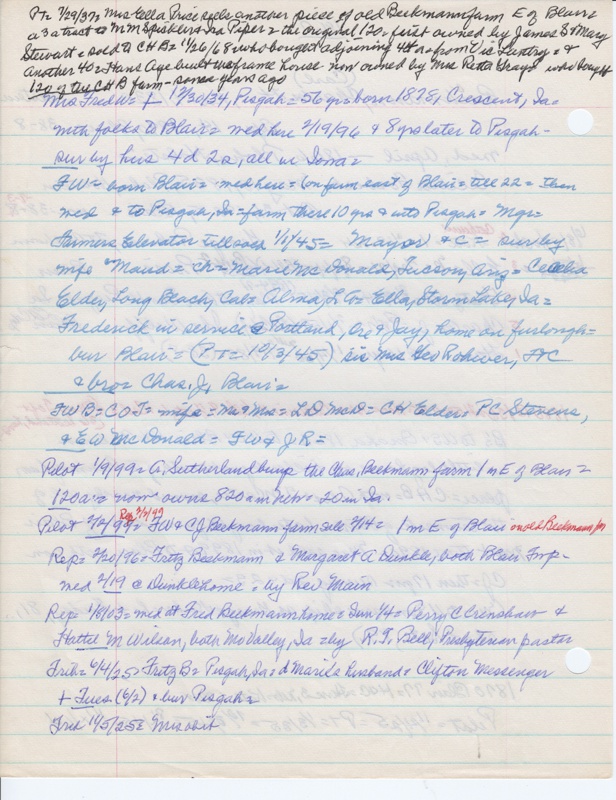 Pt= 7/29/37= Mrs Ella Price sells another piece of old Beckmann farm E of Blair=
a 3 a tract to M M Spiekers= In Piper = the original 120= first owned by James & Mary
Stewart = sold to CHB= 11/26/68= who bought adjoining 40 a from Vie Lantry = &
another 40= Hans Age built = frame house= now owned by Mrs Retta Grays who bought
120 of the CHB farm some years ago
Mrs Fred W= + 12/30/34, Pisgah= 56 yr= born 1875, Crescent, Ia=
with folks to Blair= med here 2/19/96 & 8 yrs later to Pisgah=
sur by hus 4 d 2 s, all in Iowa=
FW= born Blair= med here= on farm east of Blair= till 22= then
med & to Pisgah, Ia= farm there 10 yrs & into Pisgah= Mgr=
Farmers Elevator till 1/1/45= Mayor & C= sur by
wife Maud= ch= Marie McDonald, Tucson, Ariz= Cecelia
Elder, Long Beach, Cal= Alma, LA= Ella, Storm Lake, Ia=
Frederick in service @ Portland, Ore & Jay, home on furlough=
bur Blair= (P.T= 10/3/45) sis Mrs Geo Rohwer, Ft C
& bro= Chas. J, Blair=
FWB= COT= wife= Mr & Mrs= LD McD= CH Elder= PC Stevens,
& EW McDonald= FW & JR=
Pilot 1/9/99= A, Sutherland buys the Chas, Beckmann farm 1 m E of Blair=
120 a= now owns 820 a in Neb= 20 in Ia.
Rep 2/2/99
Pilot 2/2/99= FW & CJ Beckmann farm sale 2/14= 1 m E of Blair on old Beckmann fm
Rep= 2/20/96= Fritz Beckmann & Margaret A Dunkle, both Blair Twp=
med 2/19 @ Dunkle home= by Rev Main
Rep= 1/8/03= med at Fred Beckmann home= Sun 1/4= Perry C Crenshaw &
Hattie M Wilson, both Mo Valley, Ia= by R.T. Bell, Presbyterian pastor
Trib= 6/4/25= Fritz B= Pisgah, Ia= d Marie's husband= Clifton Messenger
+ Tues (6/2) = bur Pisgah=
Trib 11/5/25=